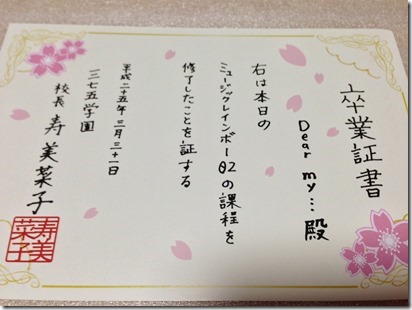 卒業証書
Dear my… 殿
右は本日の
ミュージックレインボー02の課程を
修了したことを証する
平成二十五年三月三十一日
三七五学園
校長 寿 美菜子
寿美菜子